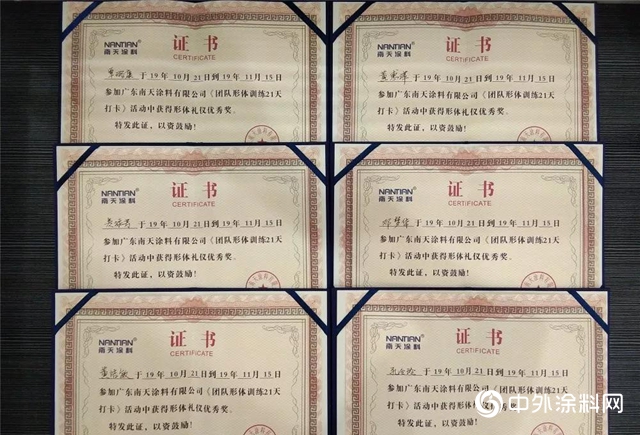 NANTIAN®
南天涂料
证书
CERTIFICATE
于19年10月21日到19年11月15日
参加广东南天涂料有限公司《团队形体训练21天
打卡》活动中获得形体礼仪优秀奖。
特发此证,以资鼓励!
NANTIAN®
南天涂料
证书
CERTIFICATE
于19年10月21日到19年11月15日
参加广东南天涂料有限公司《团队形体训练21天
打卡》活动中获得形体礼仪优秀奖。
特发此证,以资鼓励!
NANTIAN®
南天涂料
证书
CERTIFICATE
于19年10月21日到19年11月15日
参加广东南天涂料有限公司《团队形体训练21天
打卡》活动中获得形体礼仪优秀奖。
特发此证,以资鼓励!
NANTIAN®
南天涂料
证书
CERTIFICATE
于19年10月21日到19年11月15日
参加广东南天涂料有限公司《团队形体训练21天
打卡》活动中获得形体礼仪优秀奖。
特发此证,以资鼓励!
NANTIAN®
南天涂料
证书
CERTIFICATE
于19年10月21日到19年11月15日
参加广东南天涂料有限公司《团队形体训练21天
打卡》活动中获得形体礼仪优秀奖。
特发此证,以资鼓励!
NANTIAN®
南天涂料
证书
CERTIFICATE
于19年10月21日到19年11月15日
参加广东南天涂料有限公司《团队形体训练21天
打卡》活动中获得形体礼仪优秀奖。
特发此证,以资鼓励!
中外涂料网